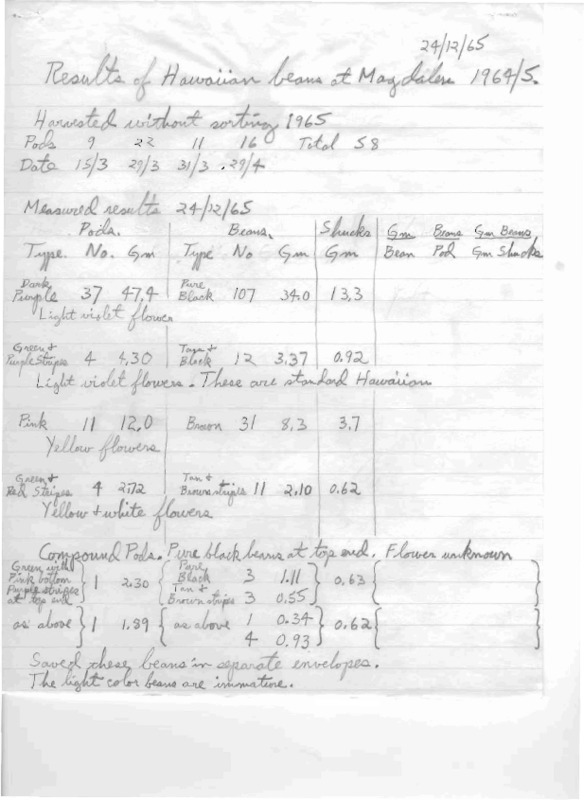 24/12/65
Results of Hawaiian beans at Magdalen 1964/5.
Harvested without sorting 1965
Pods 9 22 11 16 Total 58
Date 15/3 29/3 31/3 29/4
Measured results 24/12/65
Pods. Beans. Shucks Gm Beans Gm Beans
Type. No. Gm Type No Gm Gm Bean Pod Gm Shucks
Dark Purple 37 47.4 Pure Black 107 34.0 13.3
Light violet flower
Green + Purple Stripes 4 4.30 Tan + Black 12 3.37 0.92
Light violet flowers. These are standard Hawaiian
Pink 11 12.0 Brown 31 8.3 3.7
Yellow flowers
Green + Red Stripes 4 2.72 Tan + Brown stripes 11 2.10 0.62
Yellow + white flowers
Compound Pods. Pure black beans at top end. Flower unknown
Green with Pink bottom Purple stripes at top end 1 2.30 Pure Black 3 1.11 0.63
Tan + Brown stripes 3 0.55
as above 1 1.89 as above 1 0.34 0.62
4 0.93
Saved these beans in separate envelopes.
The light color beans are immature.